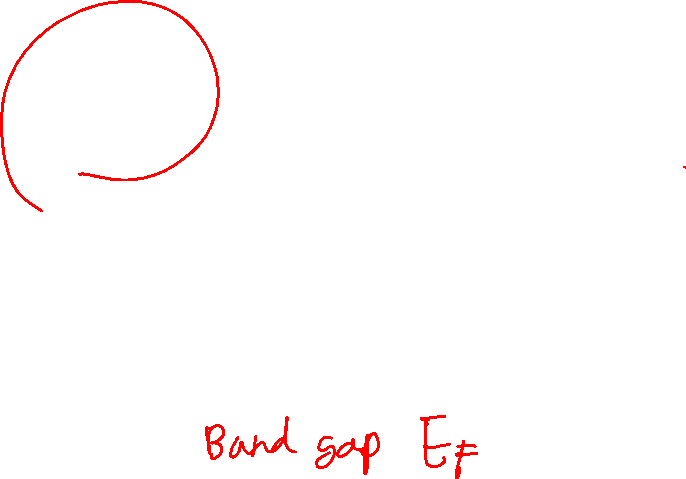 Band gap E_F